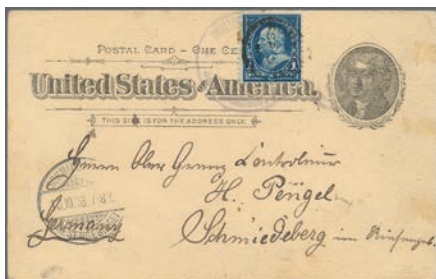 POSTAL CARD – ONE CE
United States of America.
THIS SIDE IS FOR THE ADDRESS ONLY.
1
Herrn Ober Grenz Controleur
H. Pengel
Schmiedeberg im Riesengeb.
Germany